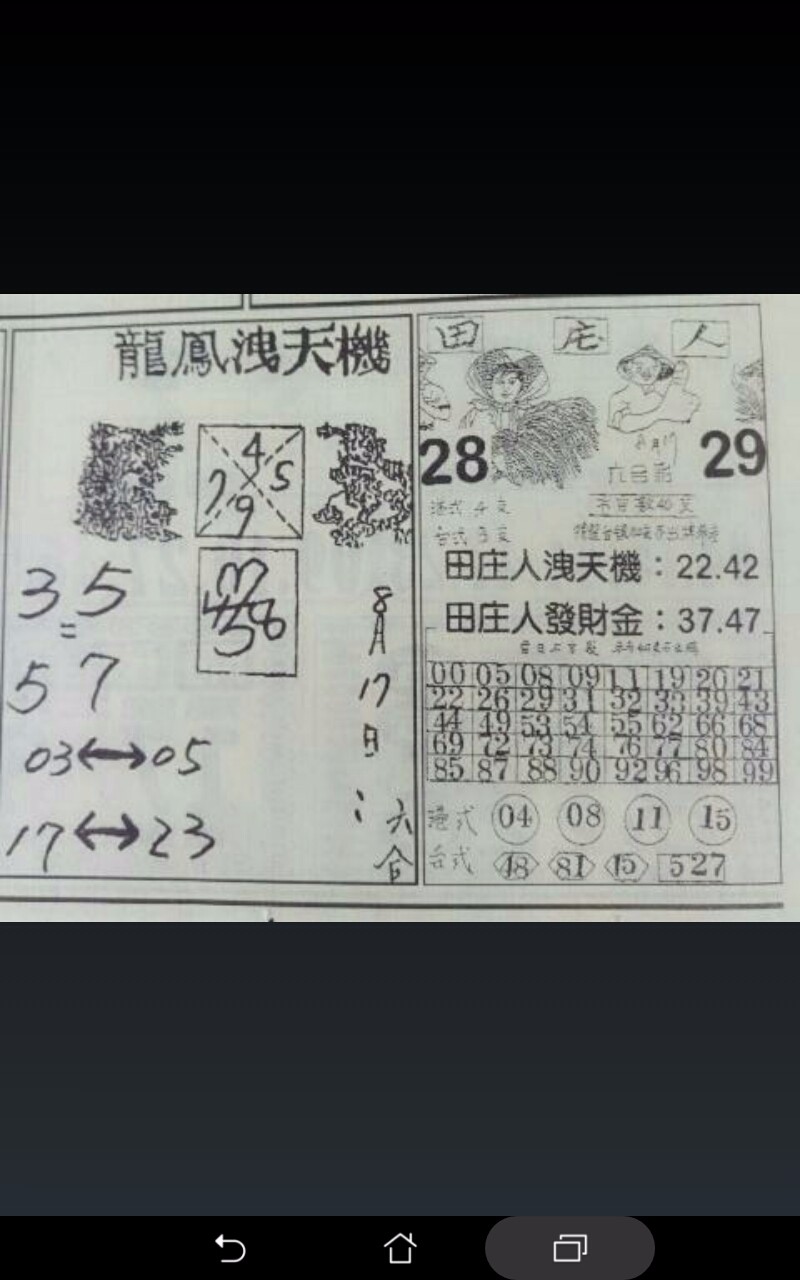 龍鳳洩天機
4
5
7
9
3 5
=
5 7
03↔05
17↔23
8月17日:六合
田庄人
28
29
8月17
六合彩
港式
台式
田庄人洩天機:22.42
田庄人發財金:37.47
00 05 08 09 11 19 20 21
22 26 29 31 32 33 39 43
44 49 53 54 55 62 66 68
69 72 73 74 76 77 80 84
85 87 88 90 92 96 98 99
港式 04 08 11 15
台式 48 81 15 527